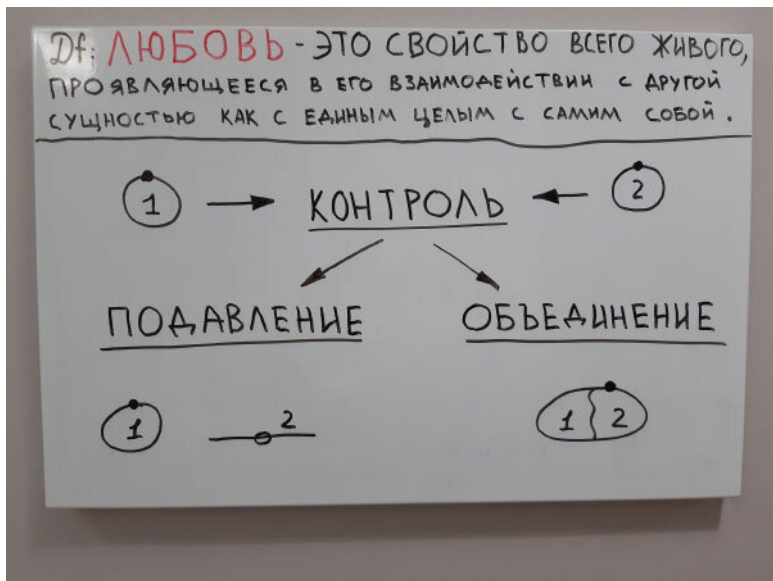 Df: ЛЮБОВЬ - ЭТО СВОЙСТВО ВСЕГО ЖИВОГО,
ПРОЯВЛЯЮЩЕЕСЯ В ЕГО ВЗАИМОДЕЙСТВИИ С ДРУГОЙ
СУЩНОСТЬЮ КАК С ЕДИНЫМ ЦЕЛЫМ С САМИМ СОБОЙ.
1 КОНТРОЛЬ 2
ПОДАВЛЕНИЕ ОБЪЕДИНЕНИЕ
1 2 1 2